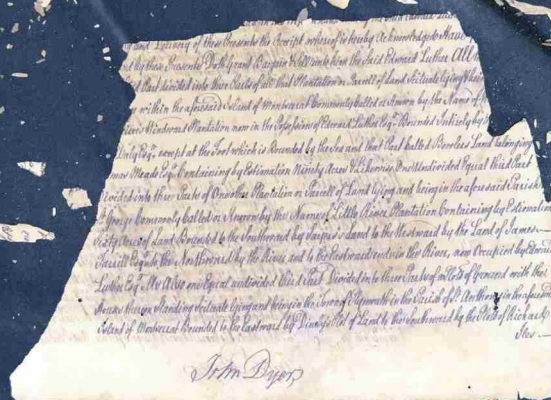 and Delivery of these Presents the Receipt whereof is hereby Acknowledged Have
and by these Presents Doth Grant Bargain & Sell unto him the Said Edward Luther All
Part divided into three Parts of all that Plantation or Parcell of Land Situate lying & being
within the aforesaid Island of Montserrat Commonly called or known by the Name of
Windward Plantation now in the Possession of Edward Luther Esqr. Bounded Entirely by
Esqr. except at the Foot which is Bounded by the Sea and that Part called Land belonging
Meade Esqr. Containing by Estimation Ninety Acres & Likewise One Undivided Equal third Part
Divided into three Parts of One other Plantation or Parcell of Land lying and being in the aforesaid Parish
George Commonly called or known by the Name of Little River Plantation Containing by Estimation
Acres of Land Bounded to the Southward by Land to the Westward by the Land of James
Esqr. to the Northward by the River and to the Eastward ends in the River, now Occupied by Edward
Luther Esqr. One Equal undivided third Part Divided into three Parts of Lots of Ground with the
House thereon Standing Situate lying and being in the Town of Plymouth in the Parish of St. Anthony in the aforesaid
Island of Montserrat Bounded to the Eastward by Lot of Land to the Southward by the Plots of Richard
John Dyer